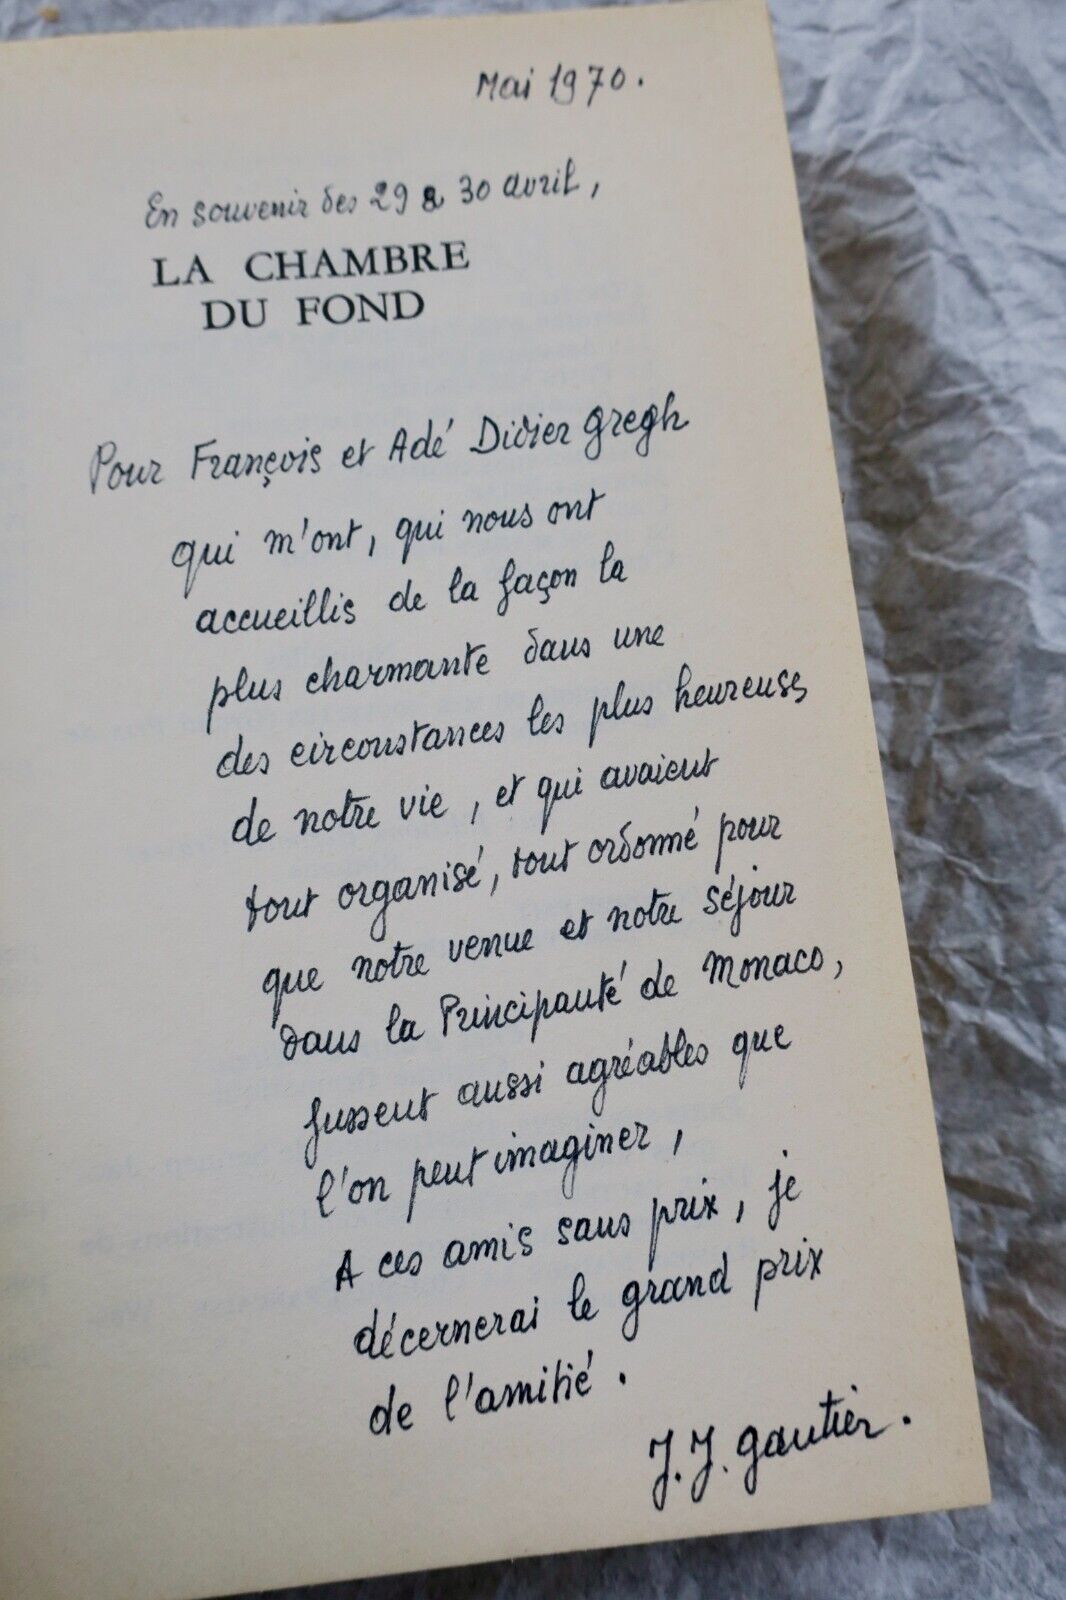 Mai 1970.
En souvenir des 29 & 30 avril,
LA CHAMBRE
DU FOND
Pour François et Adé Didier Gregh
qui m'ont, qui nous ont
accueillis de la façon la
plus charmante dans une
des circonstances les plus heureuses
de notre vie, et qui avaient
tout organisé, tout ordonné pour
que notre venue et notre séjour
dans la Principauté de Monaco,
fussent aussi agréables que
l'on peut imaginer,
A ces amis sans prix, je
décernerai le grand prix
de l'amitié.
J.J. Gautier.